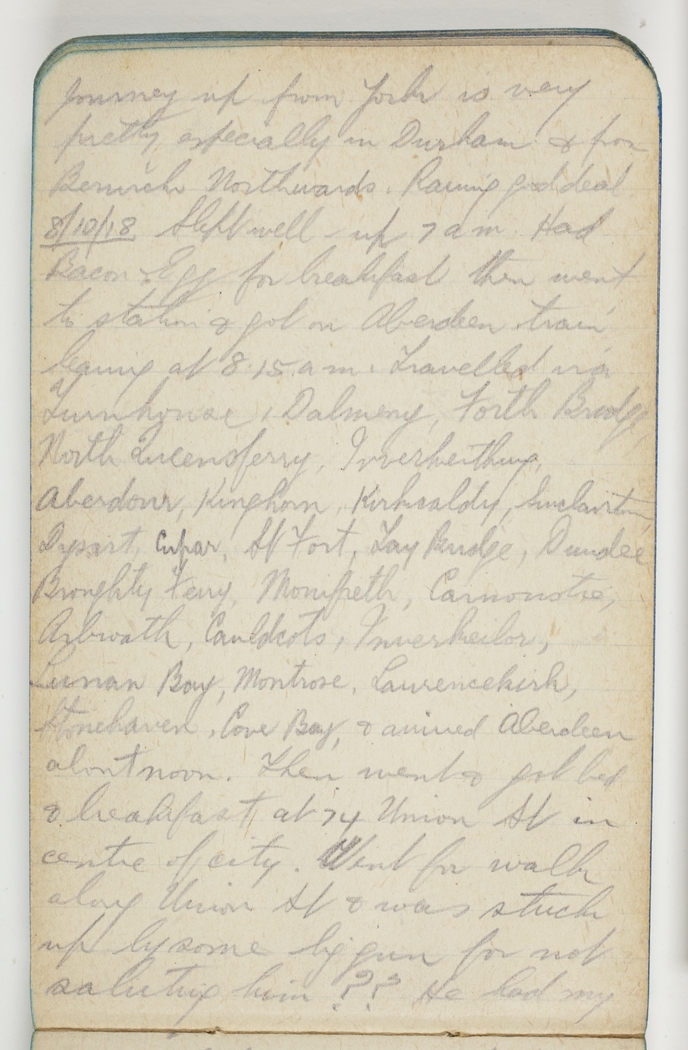 Journey up from York is very
pretty especially in Durham & from
Berwick Northwards. Raining good deal
8/10/18 Slept well - up 7 am. Had
Bacon & Egg for breakfast then went
to station & got on Aberdeen train
leaving at 8.15 am. Travelled via
Turnhouse, Dalmeny, Forth Bridge,
North Queensferry, Inverkeithing,
Aberdour, Kinghorn, Kirkcaldy, Sinclairtown,
Dysart, Cupar, St Fort, Tay Bridge, Dundee
Broughty Ferry, Monifieth, Carnoustie,
Arbroath, Cauldcots, Inverkeilor,
Lunan Bay, Montrose, Laurencekirk,
Stonehaven, Cove Bay, & arrived Aberdeen
about noon. Then went & got bed
& breakfast at 74 Union St in
centre of city. Went for walk
along Union St & was stuck
up by some big gun for not
saluting him ?? He had my